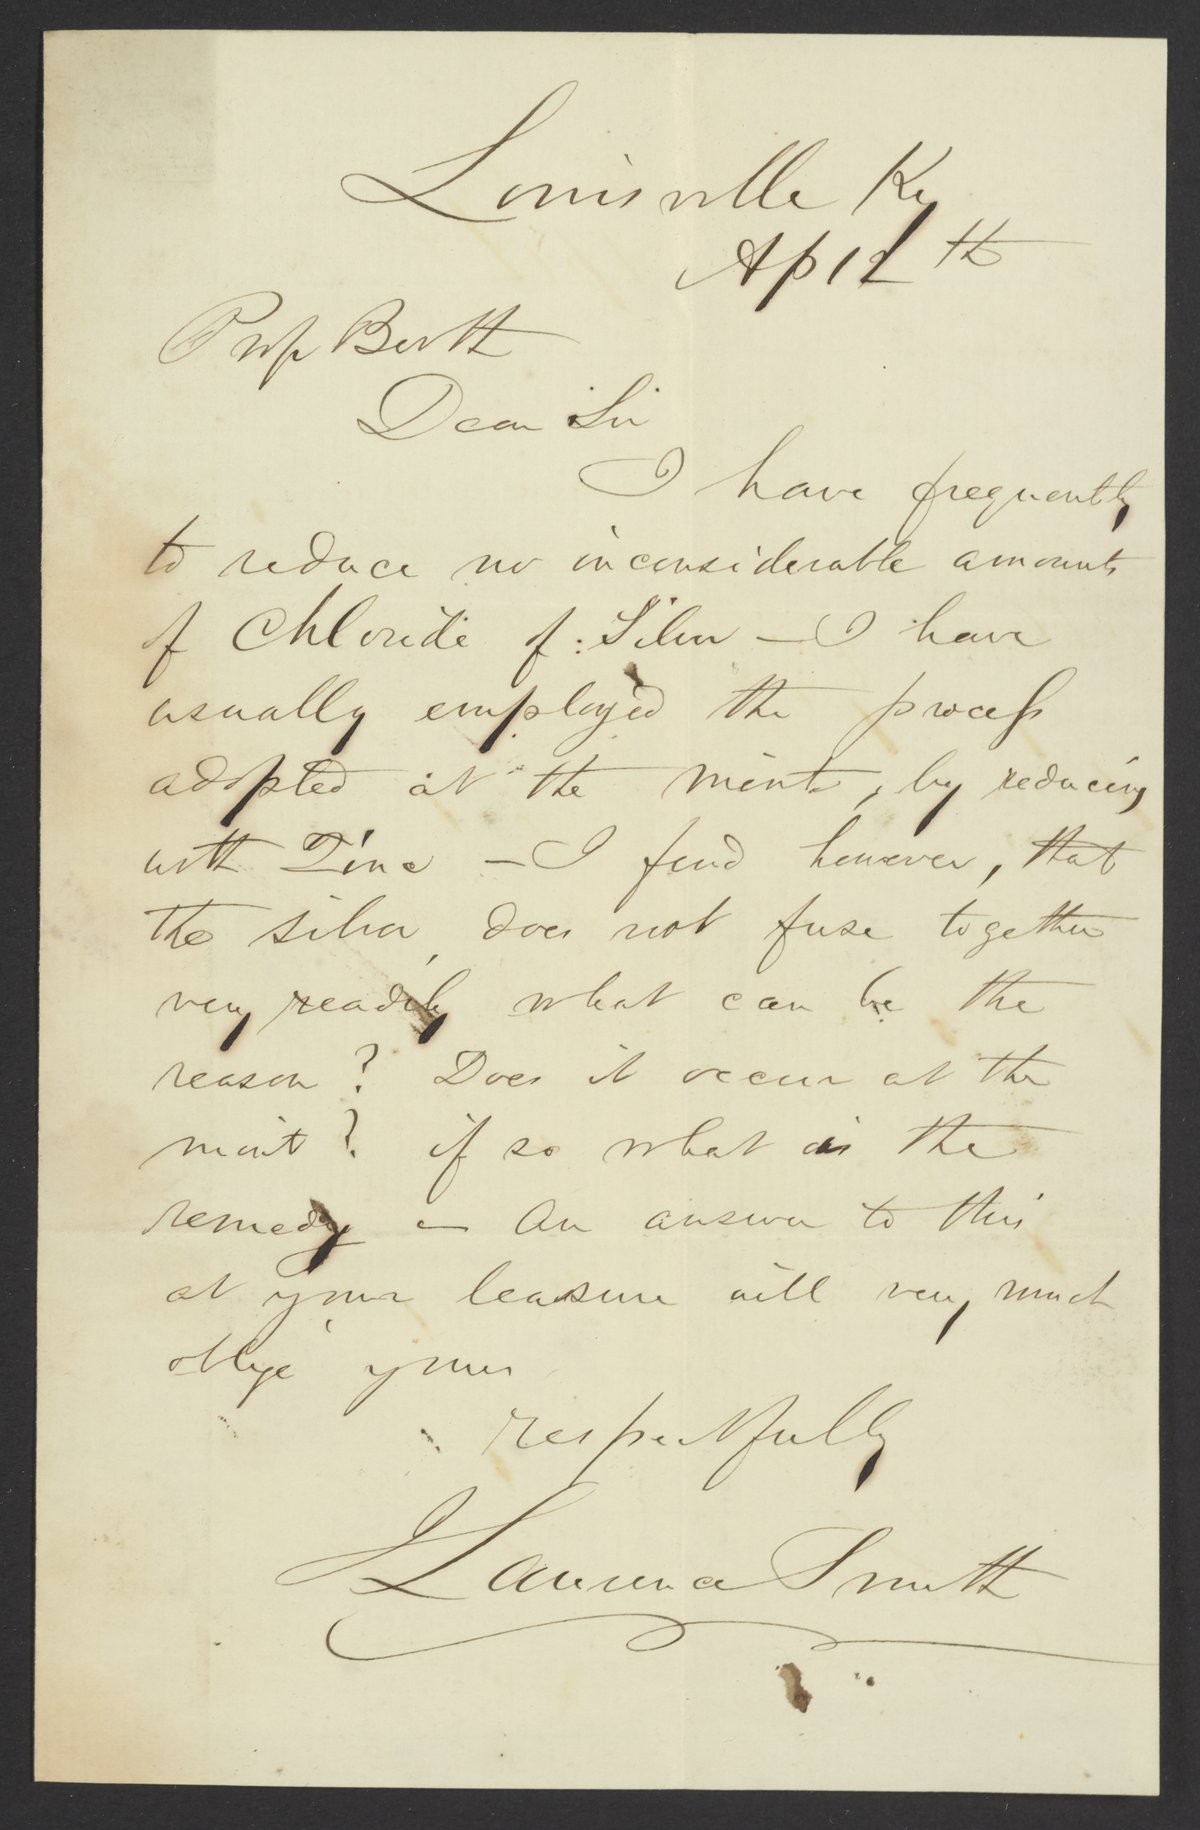 Louisville Ky
Ap 12th
Prof Booth
Dear Sir
I have frequently
to reduce no inconsiderable amounts
of Chloride of Silver — I have
usually employed the process
adopted at the mint, by reducing
with Zinc — I find however, that
the silver does not fuse together
very readily what can be the
reason? Does it occur at the
mint? if so what is the
remedy — An answer to this
at your leasure will very much
oblige yours
respectfully
J Lawrence Smith